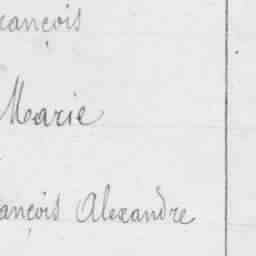 rançois
Marie
ançois Alexandre